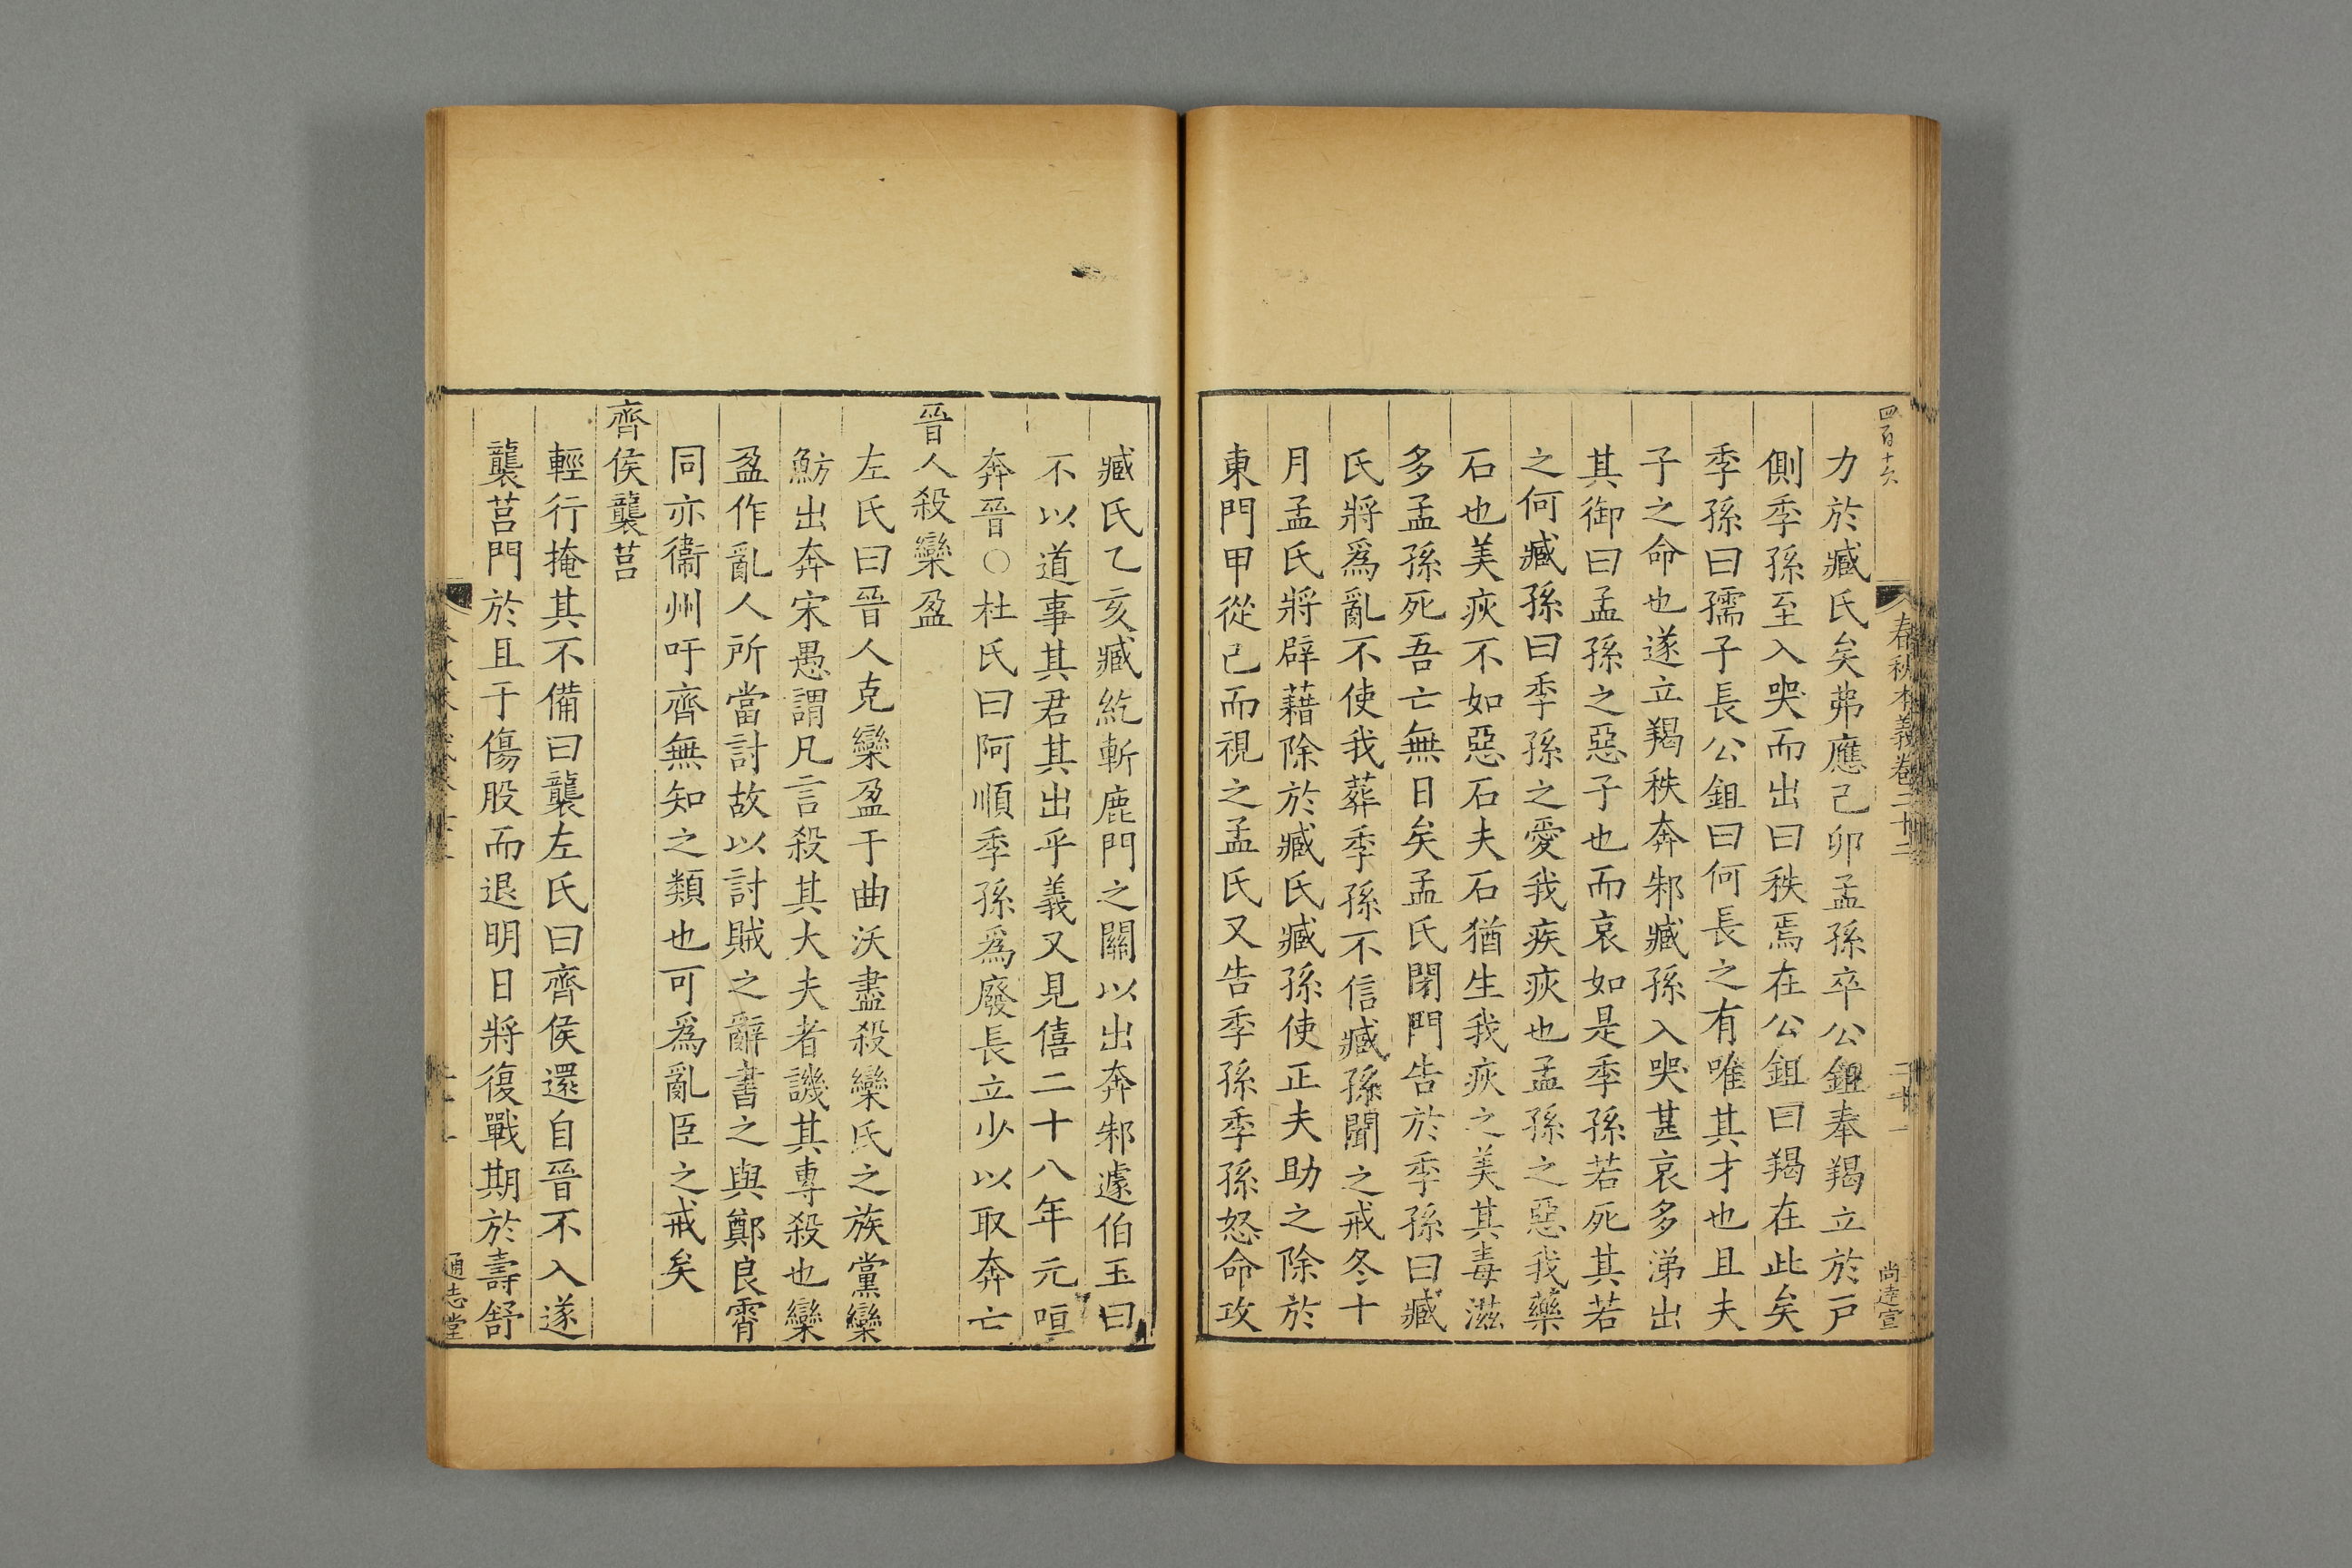 四百十六
春秋本義卷二十二
二十一
尚逵宣
力於臧氏矣弗應己卯孟孫卒公鉏奉羯立於戸
側季孫至入哭而出曰秩焉在公鉏曰羯在此矣
季孫曰孺子長公鉏曰何長之有唯其才也且夫
子之命也遂立羯秩奔邾臧孫入哭甚哀多涕出
其御曰孟孫之惡子也而哀如是季孫若死其若
之何臧孫曰季孫之愛我疾疢也孟孫之惡我藥
石也美疢不如惡石夫石猶生我疢之美其毒滋
多孟孫死吾亡無日矣孟氏閉門告於季孫曰臧
氏將爲亂不使我葬季孫不信臧孫聞之戒冬十
月孟氏將辟藉除於臧氏臧孫使正夫助之除於
東門甲從己而視之孟氏又告季孫季孫怒命攻
臧氏乙亥臧紇斬鹿門之關以出奔邾蘧伯玉曰
不以道事其君其出乎義又見僖二十八年元咺
奔晉○杜氏曰阿順季孫爲廢長立少以取奔亡
晉人殺欒盈
左氏曰晉人克欒盈于曲沃盡殺欒氏之族黨欒
魴出奔宋愚謂凡言殺其大夫者譏其專殺也欒
盈作亂人所當討故以討賊之辭書之與鄭良霄
同亦衞州吁齊無知之類也可爲亂臣之戒矣
齊侯襲莒
輕行掩其不備曰襲左氏曰齊侯還自晉不入遂
襲莒門於且于傷股而退明日將復戰期於壽舒
通志堂